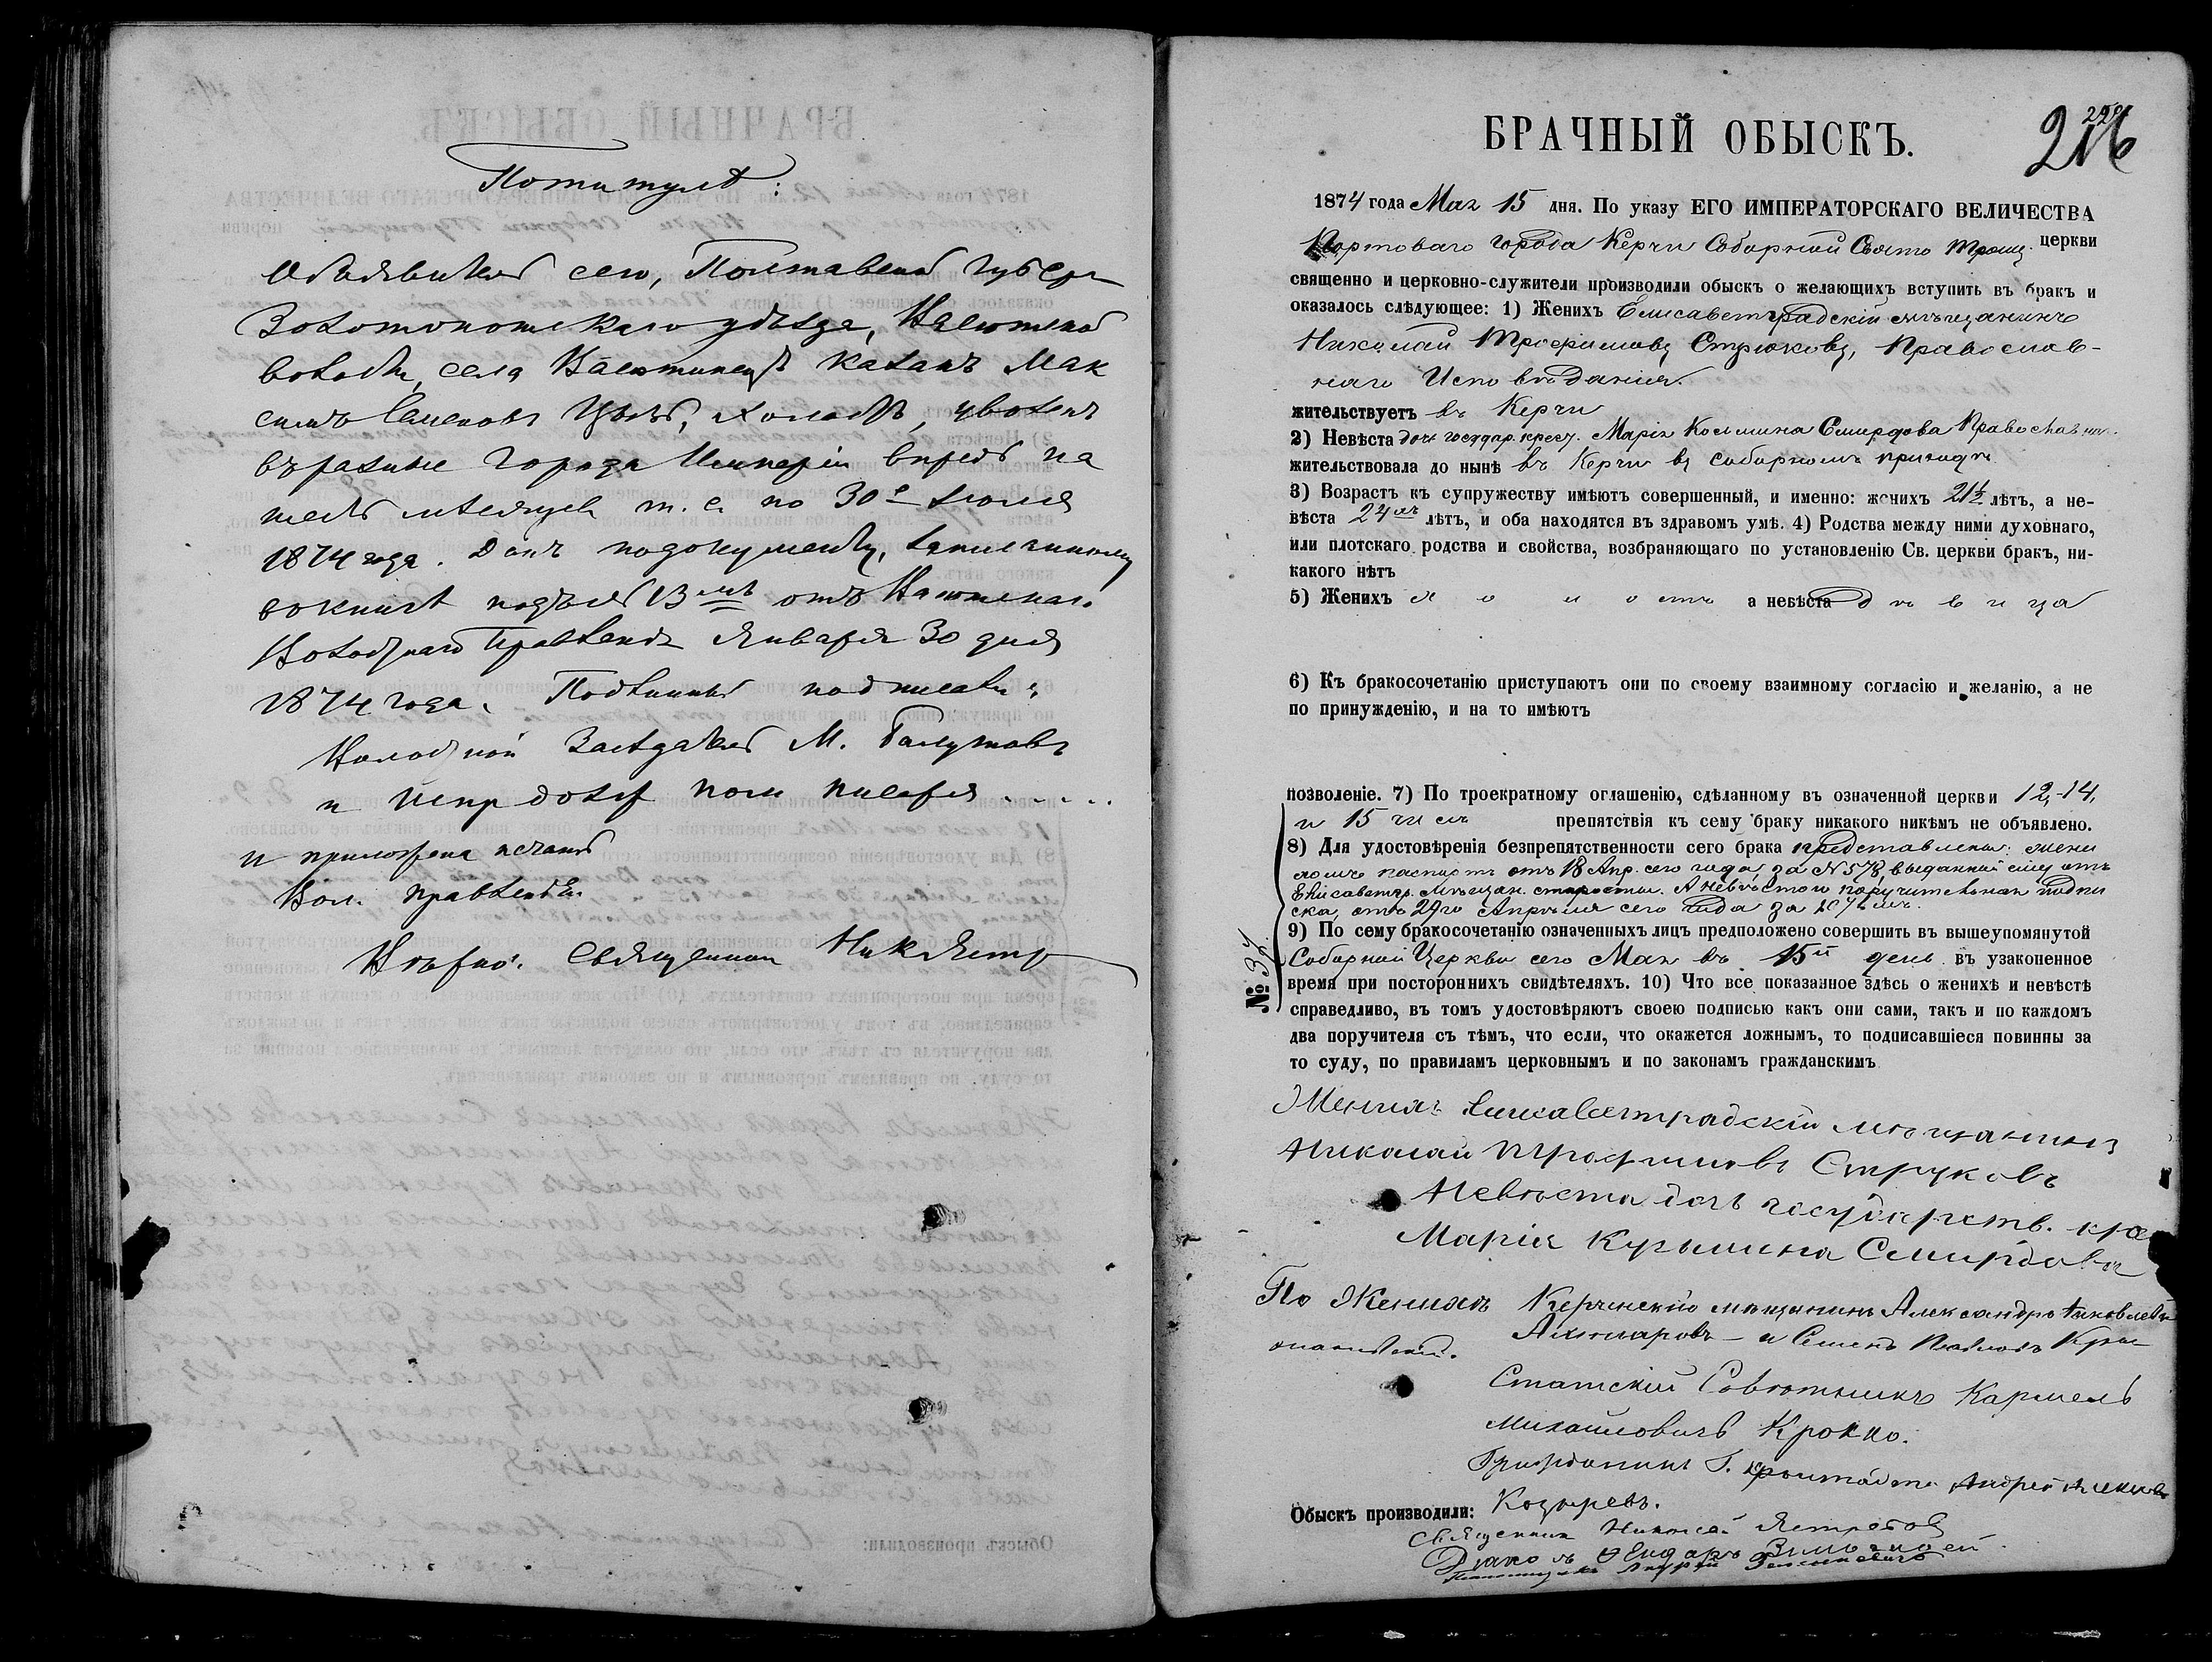 По титулѣ:
Объявитель сего, Полтавской губер
Золотоношскаго уѣзда,
волости, села казакъ Мак
симъ Семеновъ холостъ, уволенъ
въ разные города Имперіи впредь на
шесть мѣсяцевъ т. е. по 30е Іюля
1874 года. Данъ по документу, записанному
въ книгѣ подъ № 13мъ отъ
Волостнаго Правленія Января 30 дня
1874 года. Подлинный подписали:
Волостной Засѣдатель М.
и Испр долж пом писаря . . . . .
и приложена печать
Вол. правленія.
Вѣрно: Священник Ник Ястр
БРАЧНЫЙ ОБЫСКЪ.
216
1874 года Мая 15 дня. По указу ЕГО ИМПЕРАТОРСКАГО ВЕЛИЧЕСТВА
Портоваго города Керчи Соборной Свято Троиц. церкви
священно и церковно-служители производили обыскъ о желающихъ вступить въ бракъ и
оказалось слѣдующее: 1) Женихъ Елисаветградскій мѣщанинъ
Николай Трофимовъ Стрюковъ, Православ-
наго Исповѣданія.
жительствуетъ въ Керчи
2) Невѣста дочь государ. крест. Марія Косьмина Смирдова Православна.
жительствовала до нынѣ въ Керчи въ соборномъ приходѣ
3) Возрастъ къ супружеству имѣютъ совершенный, и именно: женихъ 21½ лѣтъ, а не-
вѣста 24хъ лѣтъ, и оба находятся въ здравомъ умѣ. 4) Родства между ними духовнаго,
или плотскаго родства и свойства, возбраняющаго по установленію Св. церкви бракъ, ни-
какого нѣтъ
5) Женихъ холостъ а невѣста дѣвица
6) Къ бракосочетанію приступаютъ они по своему взаимному согласію и желанію, а не
по принужденію, и на то имѣютъ
позволеніе. 7) По троекратному оглашенію, сдѣланному въ означенной церкви 12, 14,
и 15 чиселъ препятствія къ сему браку никакого никѣмъ не объявлено.
8) Для удостовѣренія безпрепятственности сего брака представлены: жени
хомъ паспортъ отъ 18 Апр. сего года за № 578, выданный ему отъ
Елисаветгр. Мѣщан. старосты. А невѣстою поручительная подпи
ска, отъ 29го Апрѣля сего года за
9) По сему бракосочетанію означенныхъ лицъ предположено совершить въ вышеупомянутой
Соборной Церкви сего Мая въ 15й день въ узаконенное
время при постороннихъ свидѣтеляхъ. 10) Что все показанное здѣсь о женихѣ и невѣстѣ
справедливо, въ томъ удостовѣряютъ своею подписью какъ они сами, такъ и по каждомъ
два поручителя съ тѣмъ, что если, что окажется ложнымъ, то подписавшіеся повинны за
то суду, по правиламъ церковнымъ и по законамъ гражданскимъ
№ 37.
Женихъ Елисаветградскій мѣщанинъ
Николай Трофимовъ Струковъ
Невѣста дочь государств. кре
Марія Кузьмина Смирдова
По Женихѣ Керченскій мѣщанинъ Александръ Яковлевъ
и Семенъ Павловъ
Статскій Совѣтникъ Кармелъ
Михайловичъ Крокко.
Гражданинъ Г. Кронштадта Андрей
Козыревъ.
Обыскъ производили:
Священник Николай Ястребов
Діаконъ
Андрей